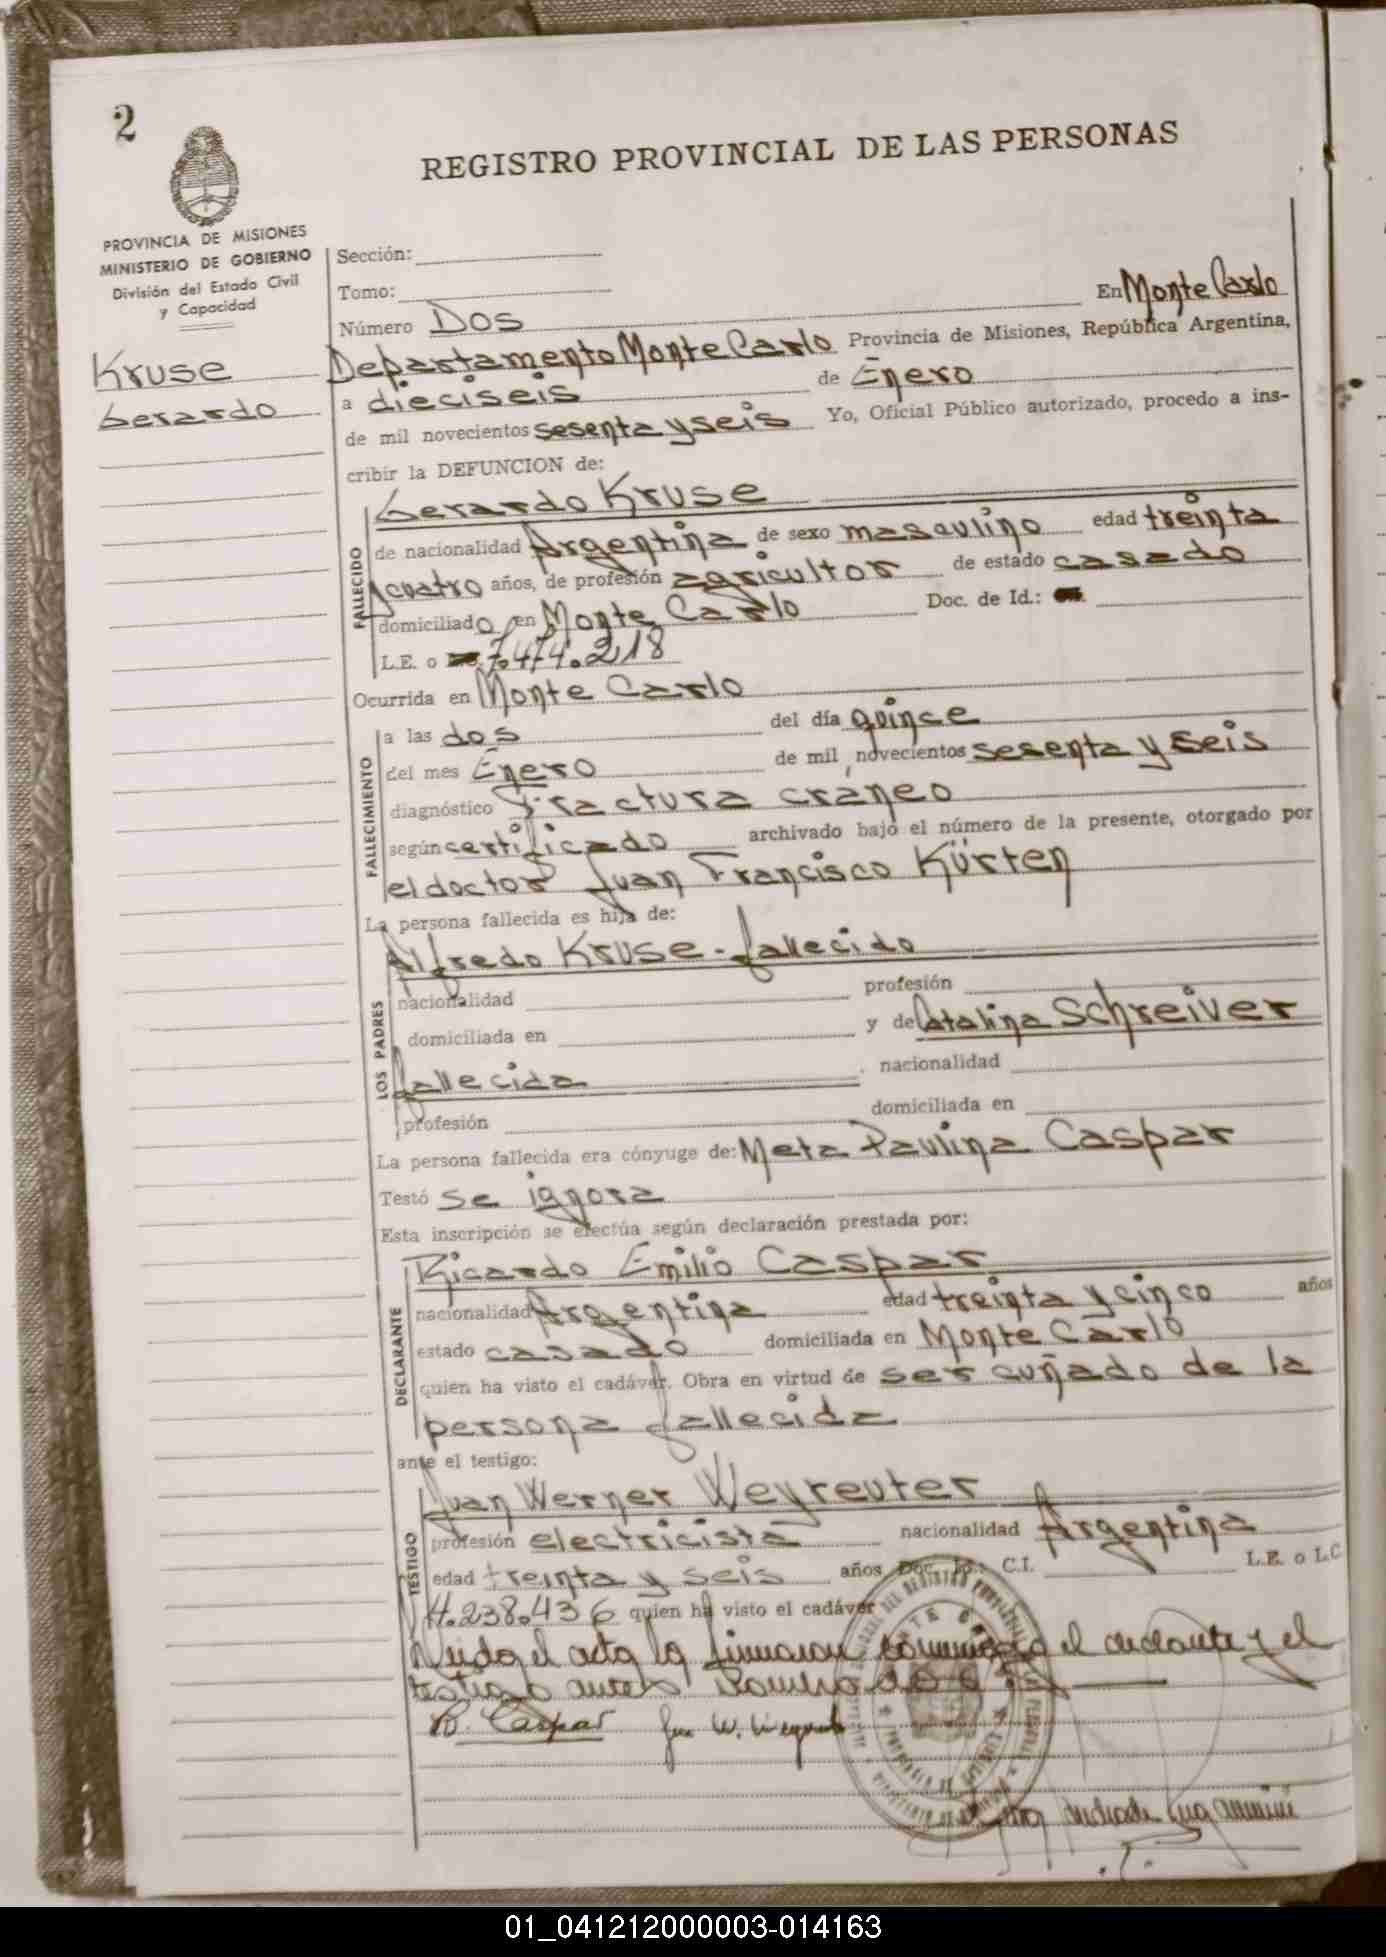 2
REGISTRO PROVINCIAL DE LAS PERSONAS
PROVINCIA DE MISIONES
MINISTERIO DE GOBIERNO
División del Estado Civil
y Capacidad
Kruse
Gerardo
Sección:
Tomo:
Número Dos En Monte Carlo
Departamento Monte Carlo Provincia de Misiones, República Argentina,
a dieciseis de Enero
de mil novecientos sesenta y seis Yo, Oficial Público autorizado, procedo a ins-
cribir la DEFUNCION de:
FALLECIDO
Gerardo Kruse
de nacionalidad Argentina de sexo masculino edad treinta
y cuatro años, de profesión agricultor de estado casado
domiciliado en Monte Carlo Doc. de Id.:
L.E. o 7.474.218
Ocurrida en Monte Carlo
FALLECIMIENTO
a las dos del día quince
del mes Enero de mil novecientos sesenta y seis
diagnóstico Fractura cráneo
según certificado archivado bajo el número de la presente, otorgado por
el doctor Juan Francisco Kürten
La persona fallecida es hija de:
LOS PADRES
Alfredo Kruse - fallecido
nacionalidad profesión
domiciliada en y de Catalina Schreiver
fallecida nacionalidad
profesión domiciliada en
La persona fallecida era cónyuge de: Meta Paulina Caspar
Testó se ignora
Esta inscripción se efectúa según declaración prestada por:
DECLARANTE
Ricardo Emilio Caspar
nacionalidad Argentina edad treinta y cinco años
estado casado domiciliada en Monte Carlo
quien ha visto el cadáver. Obra en virtud de ser cuñado de la
persona fallecida
ante el testigo:
TESTIGO
Juan Werner Weyreuter
profesión electricista nacionalidad Argentina
edad treinta y seis años Doc. Id.: C.I. L.E. o L.C
4.238.436 quien ha visto el cadáver
Leida el acta la firmaron conmigo el declarante y el
testigo antes
R. Caspar Juan W. Weyreuter
01_041212000003-014163